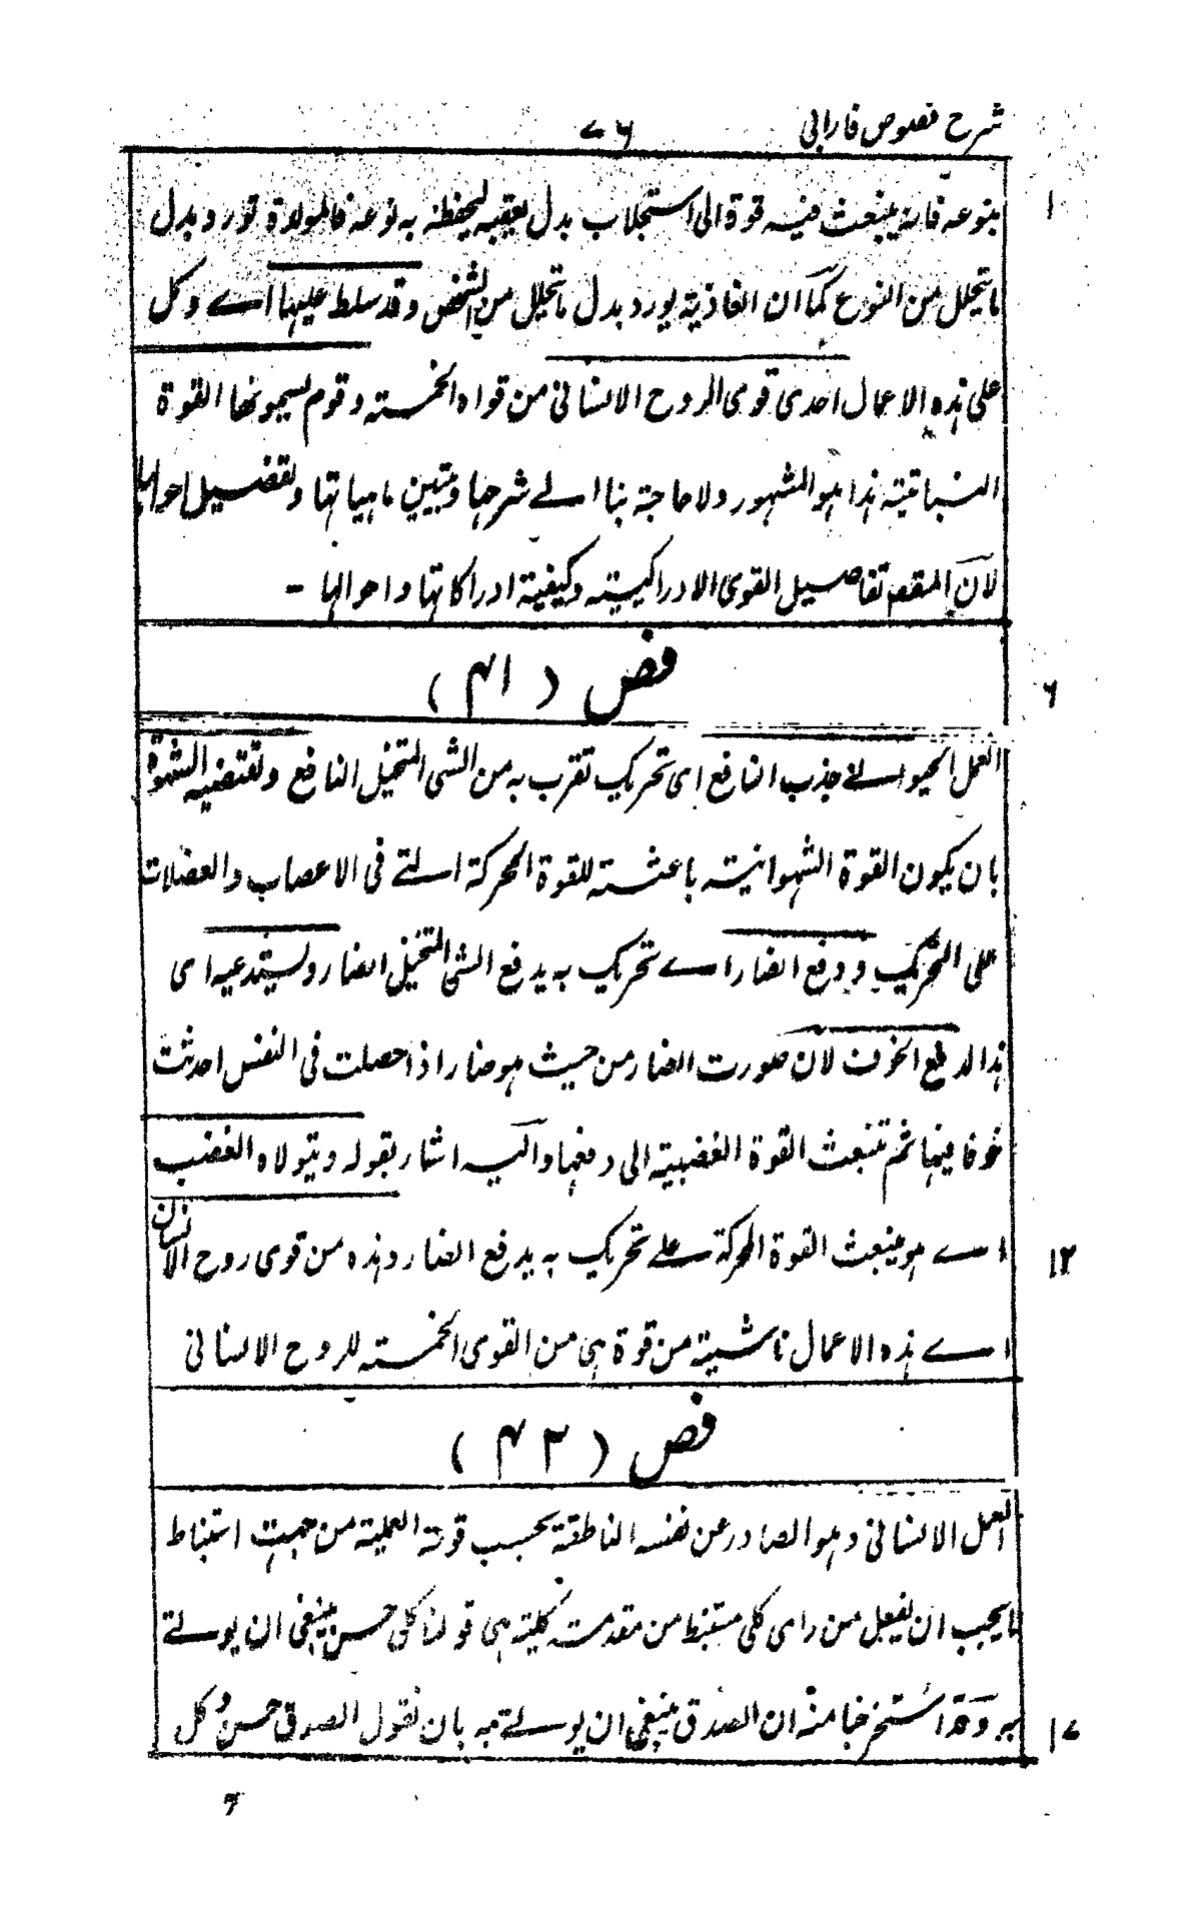 شرح فصوص فارابی ۷۶
بنوعه فانه ینبعث فیہ قوة الی استجلاب بدل یعقبه لیحفظہ به نوعه فالمولدة تورد بدل ۱
ما تحلل من النوع کما ان الغاذیة یورد بدل ما تحلل من الشخص وقد سلط علیها اے وکل
علی هذه الاعمال احدی قوی الروح الانسانی من قواه الخمسة وقوم یسمونها القوة
النباتیة هذا هو المشهور ولا حاجة بنا الے شرحها وتبیین ماهیاتها وتفصیل احوالها
لان المقصـ تفاصیل القوی الادراکیة وکیفیة ادراکاتها واحوالها -
فص (۴۱) ۶
العمل الحیوانے جذب النافع ای تحریک تقرب به من الشی المتخیل النافع وتقتضیه الشهوة
بان یکون القوة الشهوانیة باعثة للقوة المحرکة التے فی الاعصاب والعضلات
علی التحریک ودفع الضار اے تحریک به یدفع الشی المتخیل الضار ویستدعیه ای
هذا الدفع الخوف لان صورت الضار من حیث هو ضار اذا حصلت فی النفس احدثت
خوفا فیها ثم تنبعث القوة الغضبیة الی دفعها والیه اشار بقوله ویتولاه الغضب
اے هو ینبعث القوة المحرکة علے تحریک به یدفع الضار وهذه من قوی روح الانسان ۱۲
اے هذه الاعمال ناشیة من قوة هی من القوی الخمسة للروح الانسانی
فص (۴۲)
العمل الانسانی وهو الصادر عن نفسه الناطقة بحسب قوته العملیة من جهت استنباط
ما یجب ان یفعل من رای کلی مستنبط من مقدمة کلیة هی قولنا کل حسن ینبغی ان یوتے
به وقد استخرجنا منه ان الصدق ینبغی ان یوتے به بان نقول الصدق حسن وکل ۱۷